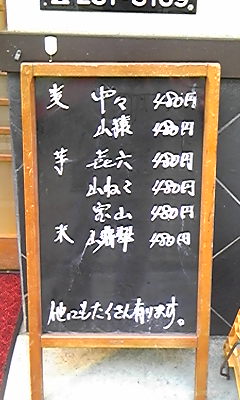 麦 中々 480円
山猿 480円
芋 㐂六 480円
山ねこ 480円
宝山 480円
米 山翡翠 480円
他にもたくさん有ります。